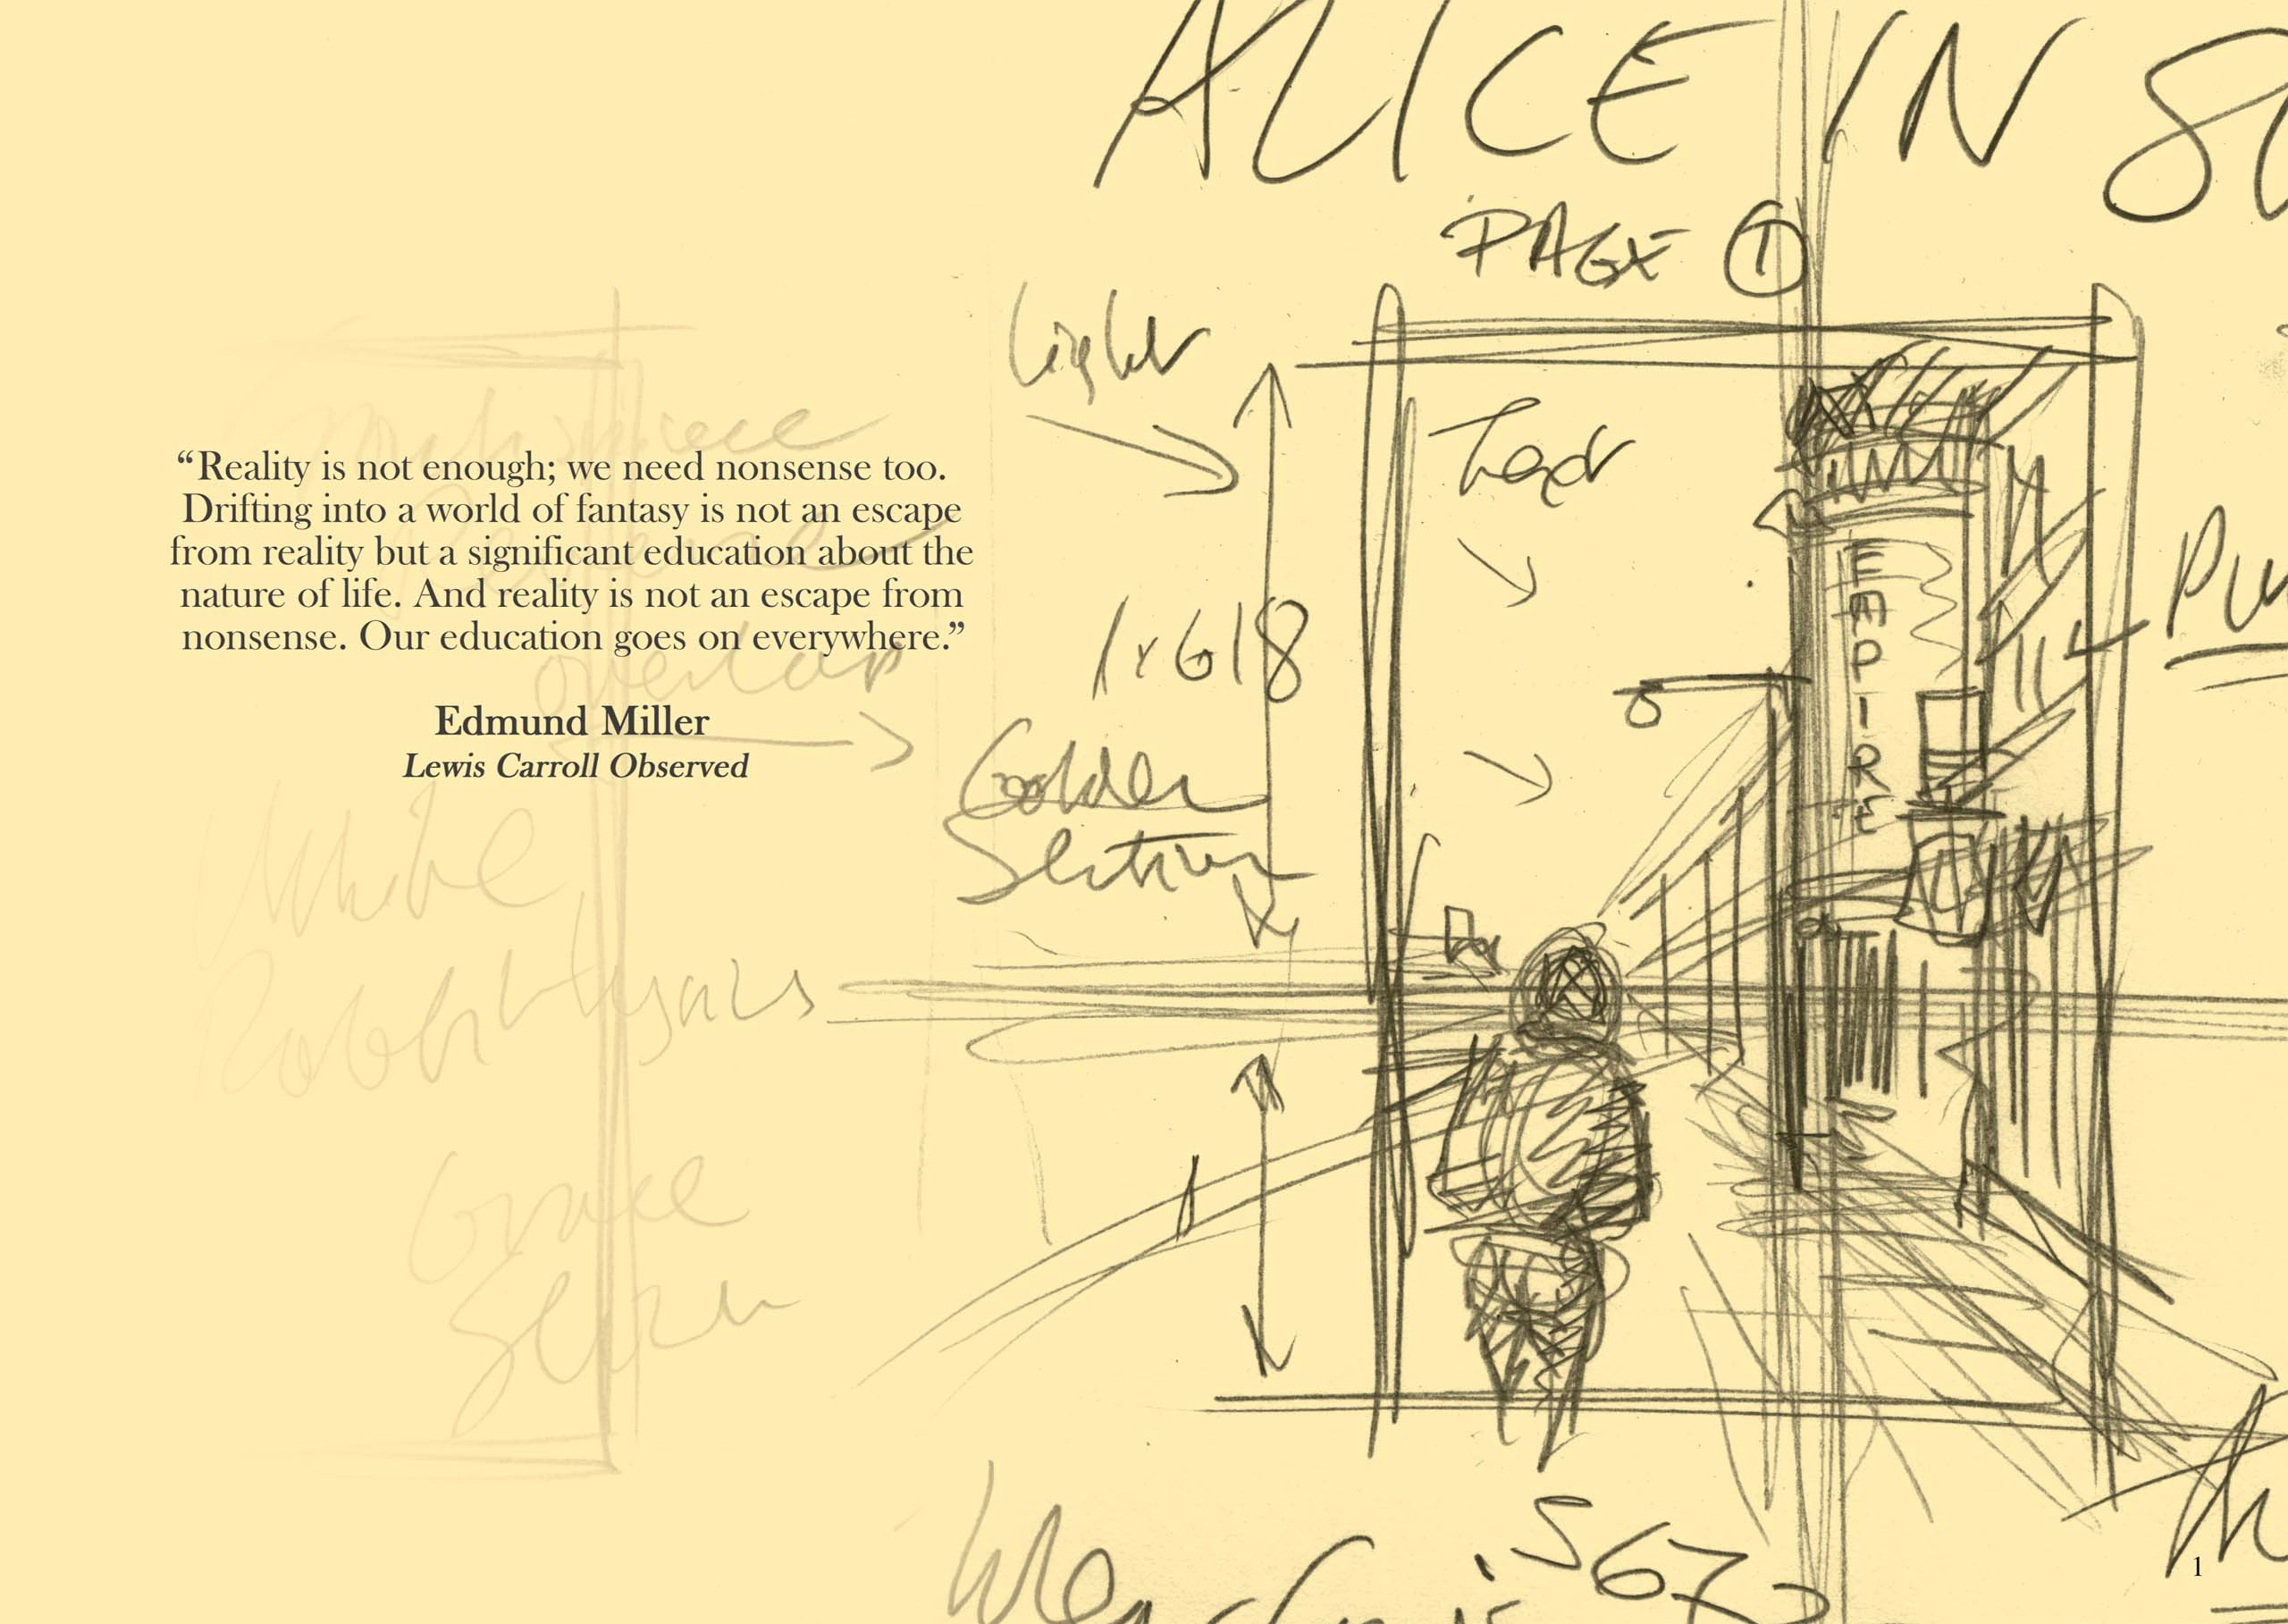 ALICE IN SU
PAGE 1
“Reality is not enough; we need nonsense too.
Drifting into a world of fantasy is not an escape
from reality but a significant education about the
nature of life. And reality is not an escape from
nonsense. Our education goes on everywhere.”
Edmund Miller
Lewis Carroll Observed
Light
Text
1x618
Golden
Section
EMPIRE
overlap
White
Rabbit
1
567
1